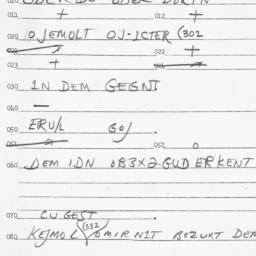 011 + 012 +
020 OJEMOLT OJ-ICTER (302
022 +
023 +
030 IN DEM GEGNT
040 —
050 ERU/L GOJ
052 0
060 DEM IDN OB3X2 GUD ERKENT
070 CU GEST .
(332)
080 KEJMOL OMIR NIT BEZUXT DEM